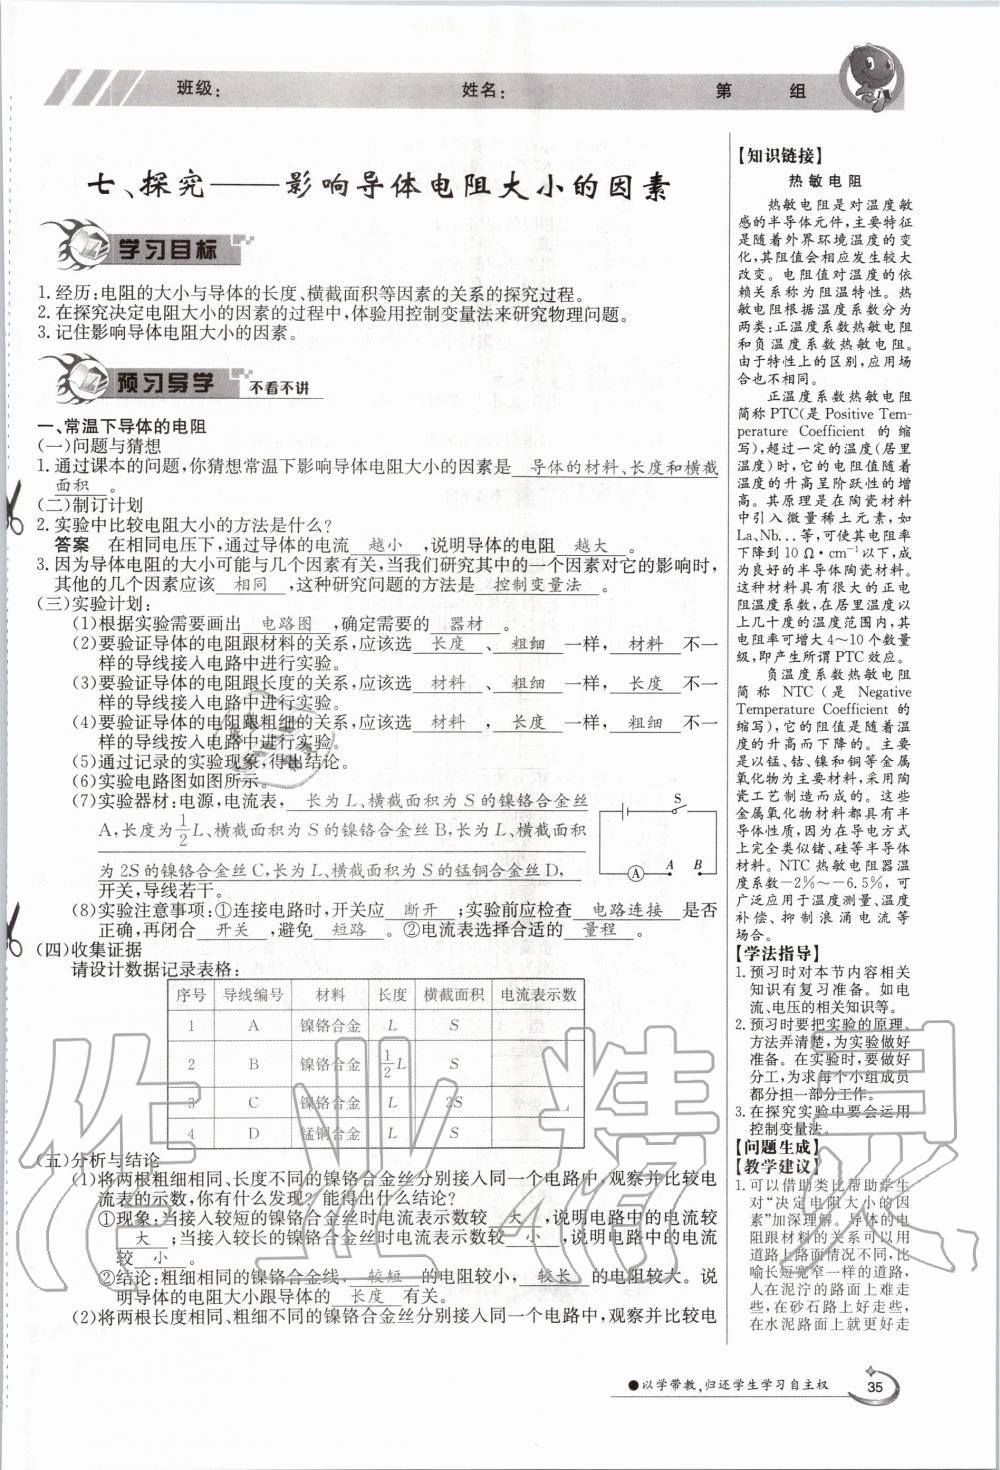 班级： 姓名： 第 组
七、探究——影响导体电阻大小的因素
学习目标
1. 经历:电阻的大小与导体的长度、横截面积等因素的关系的探究过程。
2. 在探究决定电阻大小的因素的过程中,体验用控制变量法来研究物理问题。
3. 记住影响导体电阻大小的因素。
预习导学 不看不讲
一、常温下导体的电阻
(一)问题与猜想
1. 通过课本的问题,你猜想常温下影响导体电阻大小的因素是 导体的材料、长度和横截
面积 。
(二)制订计划
2. 实验中比较电阻大小的方法是什么?
答案 在相同电压下,通过导体的电流 越小 ,说明导体的电阻 越大 。
3. 因为导体电阻的大小可能与几个因素有关,当我们研究其中的一个因素对它的影响时,
其他的几个因素应该 相同 ,这种研究问题的方法是 控制变量法 。
(三)实验计划:
(1)根据实验需要画出 电路图 ,确定需要的 器材 。
(2)要验证导体的电阻跟材料的关系,应该选 长度 、 粗细 一样, 材料 不一
样的导线接入电路中进行实验。
(3)要验证导体的电阻跟长度的关系,应该选 材料 、 粗细 一样, 长度 不一
样的导线接入电路中进行实验。
(4)要验证导体的电阻跟粗细的关系,应该选 材料 , 长度 一样, 粗细 不一
样的导线按入电路中进行实验。
(5)通过记录的实验现象,得出结论。
(6)实验电路图如图所示。
(7)实验器材:电源,电流表, 长为 L、横截面积为 S 的镍铬合金丝
A,长度为 1/2 L、横截面积为 S 的镍铬合金丝 B,长为 L、横截面积
为 2S 的镍铬合金丝 C,长为 L、横截面积为 S 的锰铜合金丝 D,
开关,导线若干。
S
A A B
(8)实验注意事项:①连接电路时,开关应 断开 ;实验前应检查 电路连接 是否
正确,再闭合 开关 ,避免 短路 。②电流表选择合适的 量程 。
(四)收集证据
请设计数据记录表格:
序号 导线编号 材料 长度 横截面积 电流表示数
1 A 镍铬合金 L S
2 B 镍铬合金 1/2 L S
3 C 镍铬合金 L 2S
4 D 锰铜合金 L S
(五)分析与结论
(1)将两根粗细相同、长度不同的镍铬合金丝分别接入同一个电路中,观察并比较电
流表的示数,你有什么发现?能得出什么结论?
①现象:当接入较短的镍铬合金丝时电流表示数较 大 ,说明电路中的电流较
大 ;当接入较长的镍铬合金丝时电流表示数较 小 ,说明电路中的电流
较 小 。
②结论:粗细相同的镍铬合金线, 较短 的电阻较小, 较长 的电阻较大。说
明导体的电阻大小跟导体的 长度 有关。
(2)将两根长度相同、粗细不同的镍铬合金丝分别接入同一个电路中,观察并比较电
【知识链接】
热敏电阻
热敏电阻是对温度敏
感的半导体元件,主要特征
是随着外界环境温度的变
化,其阻值会相应发生较大
改变。电阻值对温度的依
赖关系称为阻温特性。热
敏电阻根据温度系数分为
两类:正温度系数热敏电阻
和负温度系数热敏电阻。
由于特性上的区别,应用场
合也不相同。
正温度系数热敏电阻
简称 PTC(是 Positive Tem-
perature Coefficient 的 缩
写),超过一定的温度(居里
温度)时,它的电阻值随着
温度的升高呈阶跃性的增
高。其原理是在陶瓷材料
中引入微量稀土元素,如
La、Nb...等,可使其电阻率
下降到 10 Ω·cm⁻¹以下,成
为良好的半导体陶瓷材料。
这种材料具有很大的正电
阻温度系数,在居里温度以
上几十度的温度范围内,其
电阻率可增大 4～10 个数量
级,即产生所谓 PTC 效应。
负温度系数热敏电阻
简称 NTC(是 Negative
Temperature Coefficient 的
缩写),它的阻值是随着温
度的升高而下降的。主要
是以锰、钴、镍和铜等金属
氧化物为主要材料,采用陶
瓷工艺制造而成的。这些
金属氧化物材料都具有半
导体性质,因为在导电方式
上完全类似锗、硅等半导体
材料。NTC 热敏电阻器温
度系数－2%～－6.5%,可
广泛应用于温度测量、温度
补偿、抑制浪涌电流等
场合。
【学法指导】
1. 预习时对本节内容相关
知识有复习准备。如电
流、电压的相关知识等。
2. 预习时要把实验的原理、
方法弄清楚,为实验做好
准备。在实验时,要做好
分工,为求每个小组成员
都分担一部分工作。
3. 在探究实验中要会运用
控制变量法。
【问题生成】
【教学建议】
1. 可以借助类比帮助学生
对“决定电阻大小的因
素”加深理解。导体的电
阻跟材料的关系可以用
道路上路面情况不同,比
喻长短宽窄一样的道路,
人在泥泞的路面上难走
些,在砂石路上好走些,
在水泥路面上就更好走
●以学带教,归还学生学习自主权 35
作业精灵